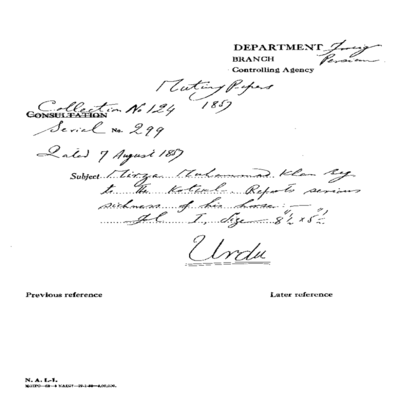 DEPARTMENT Foreign
BRANCH Persian
Controlling Agency
Mutiny Papers
Collection No 124 1857
CONSULTATION
Serial No. 299
Dated 7 August 1857
Subject Mirza Muhammad Khan
to The Kotwal. Reports serious
sickness of his horse: —
fl 1, Size 8½" x 5½"
Urdu
Previous reference Later reference
N. A. I.-I.